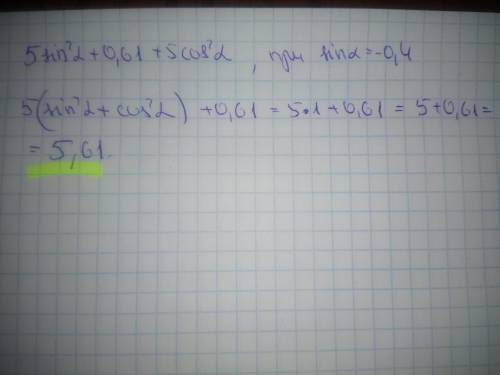 5sin²α+0,61+5cos²α, при sinα=-0,4
5(sin²α+cos²α)+0,61=5•1+0,61=5+0,61=
=5,61.